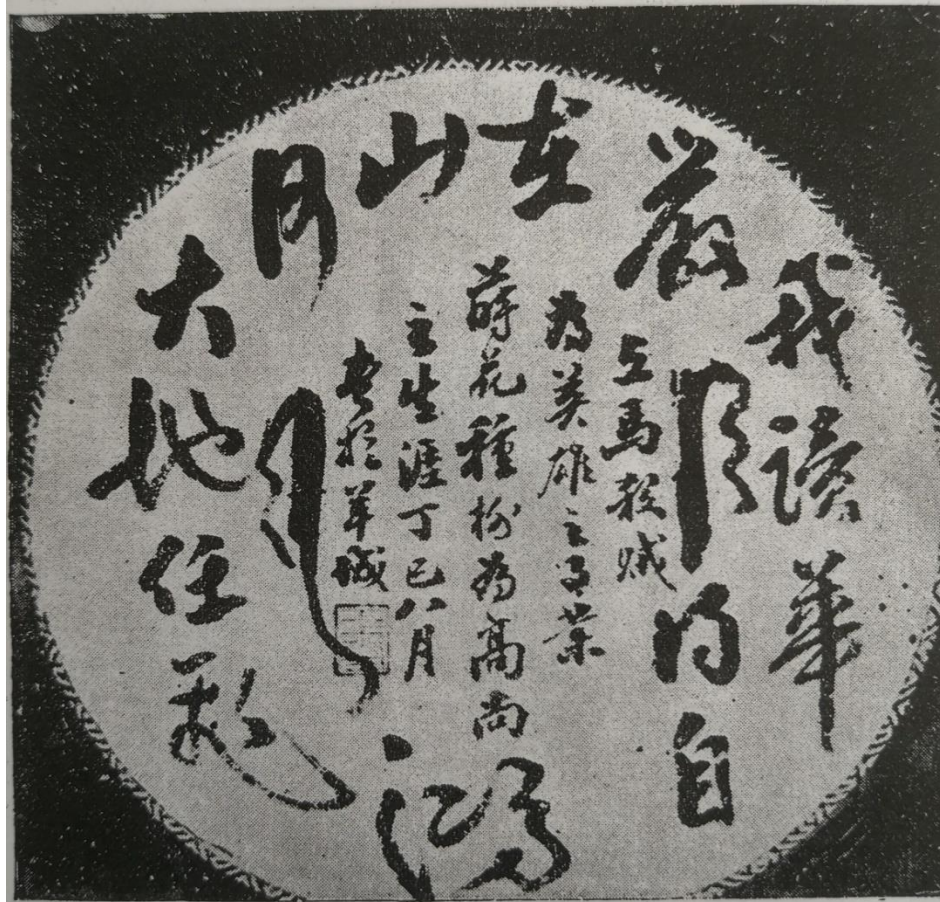 我讀華
嚴得自
在
山
大地任
上馬殺賊
為英雄之事業
蒔花種樹為高尚
之生涯丁巳八月
書於羊城